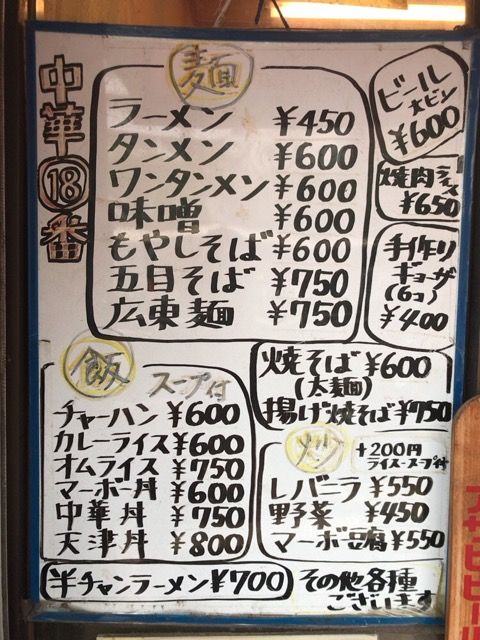 中華⑱番
麺
ラーメン ¥450
タンメン ¥600
ワンタンメン ¥600
味噌 ¥600
もやしそば ¥600
五目そば ¥750
広東麺 ¥750
ビール
大ビン
¥600
焼肉ライス
¥650
手作り
ギョーザ
(6コ)
¥400
焼そば ¥600
(太麺)
揚げ焼そば ¥750
飯 スープ付
チャーハン ¥600
カレーライス ¥600
オムライス ¥750
マーボー丼 ¥600
中華丼 ¥750
天津丼 ¥800
炒 +200円
ライス・スープ付
レバニラ ¥550
野菜 ¥450
マーボ豆腐 ¥550
半チャンラーメン ¥700
その他各種
ございます
アサヒビール